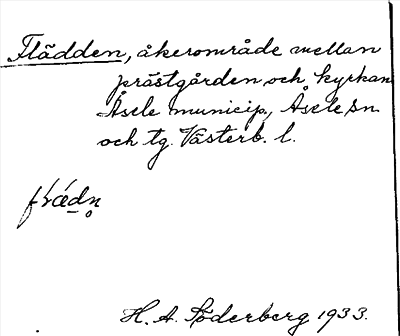 Flädden, åkerområde mellan
prästgården och kyrkan
Åsele municip, Åsele sn
och tg. Västerb. l.
H. A. Söderberg 1933.